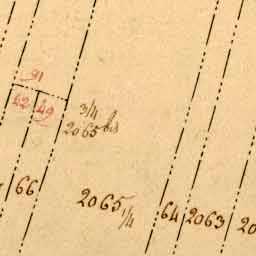 91
62 49
3/4 bis
2065
66
2065 1/4
64
2063
20